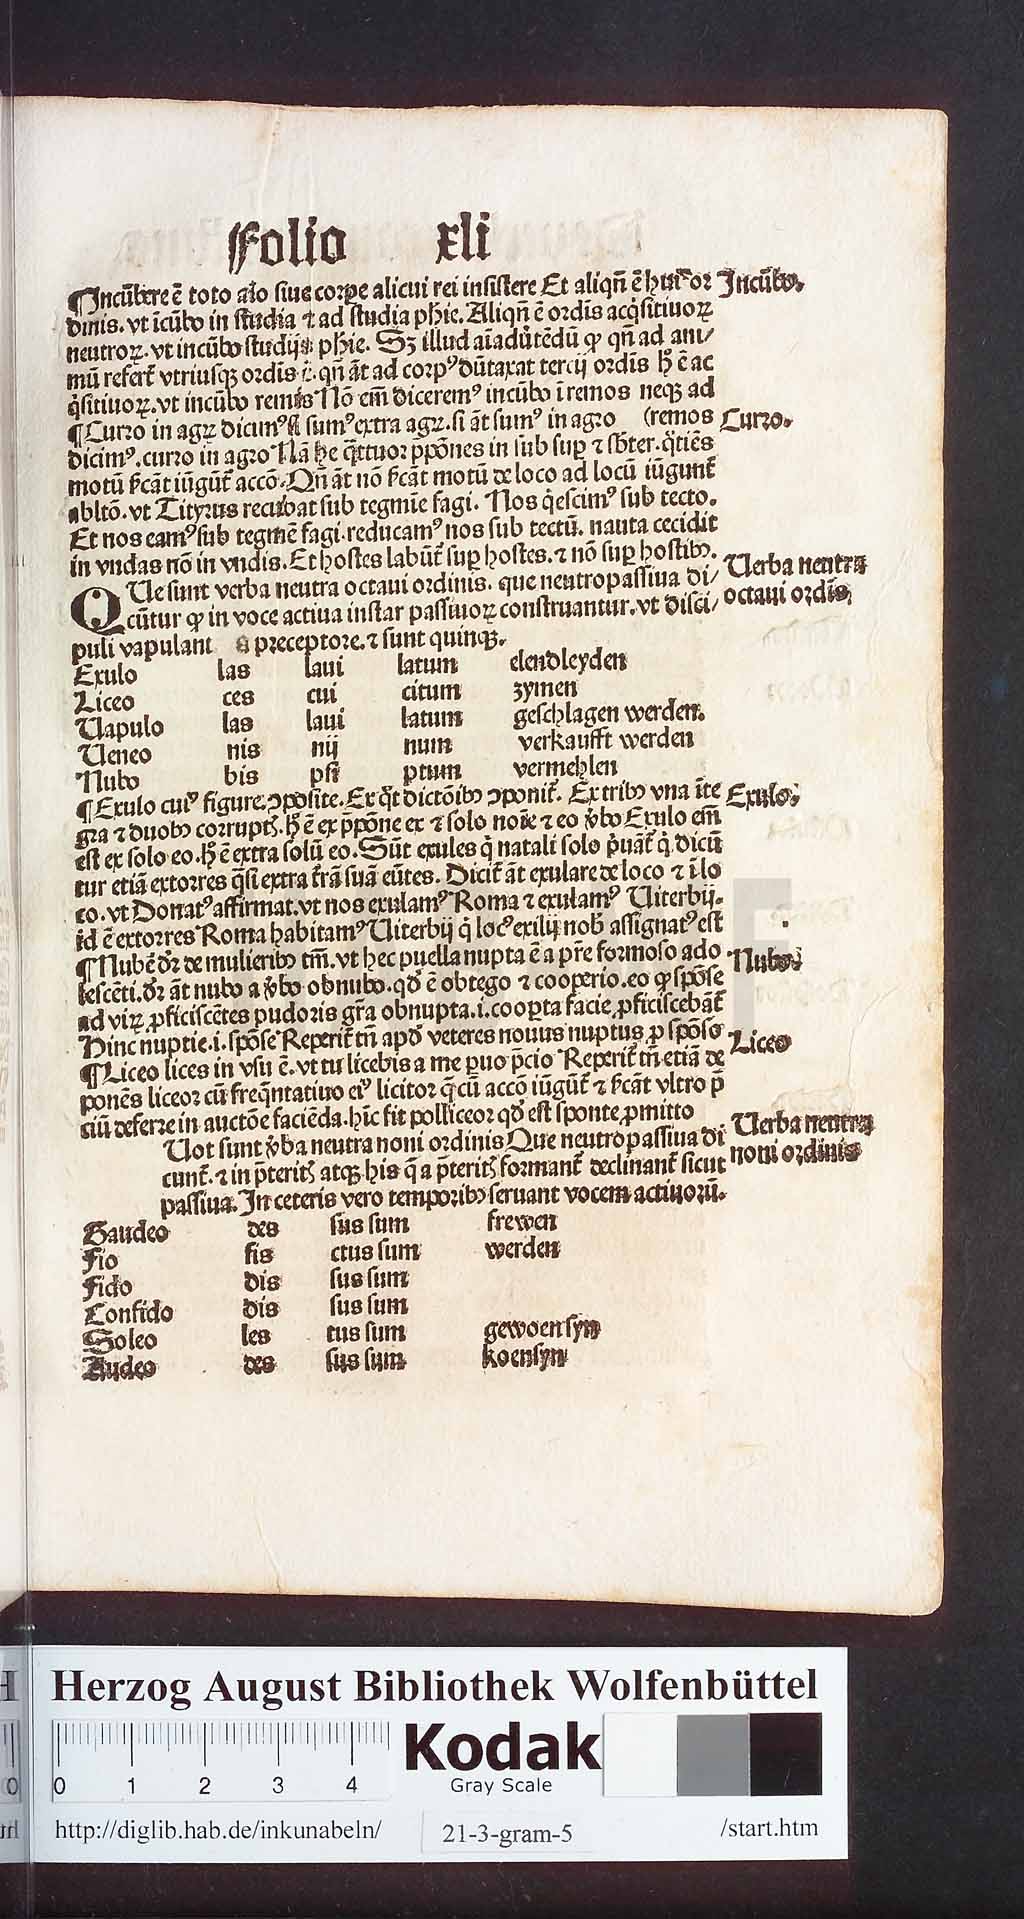 Folio xli
¶Incūbere ē toto aīo siue corpe alicui rei insistere Et aliqn̄ ē huiꝰ or Incūbo.
dinis. vt īcūbo in studia ⁊ ad studia phīe. Aliqn̄ ē ordīs acq̇sitiuoꝝ
neutroꝝ. vt incūbo studijs phīe. Sꝫ illud aīaduͥtēdū ꝙ qn̄ ad ani/
mū refert᷑ vtriusqꝫ ordīs ē. qn̄ āt ad corpꝰ dūtaxat tercij ordīs hͦ ē ac
q̇sitiuoꝝ. vt incūbo remis Nō em̄ diceremꝰ incūbo ī remos neqꝫ ad
¶Curro in agꝝ dicimꝰ si sumꝰ extra agꝝ. si āt sumꝰ in agro (remos Curro.
dicimꝰ. curro in agro Nā he q̄ttuor p̄pōnes in sub suꝑ ⁊ sb̄ter. q̄tiēs
motū sīcāt iūgūt᷑ accō. Qn̄ āt nō sīcāt motū de loco ad locū iūgunt᷑
abltō. vt Tityrus recubat sub tegmīe fagi. Nos q̇escimꝰ sub tecto.
Et nos eamꝰ sub tegmē fagi. reducamꝰ nos sub tectū. nauta cecidit
in vndas nō in vndis. Et hostes labūt᷑ suꝑ hostes. ⁊ nō suꝑ hostibꝰ.
QUe sunt verba neutra octaui ordinis. que neutropassiua di/ Uerba neutra
cūtur ꝙ in voce actiua instar passiuoꝝ construantur. vt disci/ octaui ordīs.
puli vapulant a preceptore. ⁊ sunt quinqꝫ.
Exulo las laui latum elendleyden
Liceo ces cui citum zymen
Uapulo las laui latum geschlagen werden.
Ueneo nis nij num verkaufft werden
Nubo bis psi ptum vermehlen
¶Exulo cuiꝰ figure. ꝯposite. Ex qͦt dictōibꝰ ꝯponit᷑. Ex tribꝰ vna īte Exulo.
gra ⁊ duobꝰ corruptꝭ. hͦ ē ex p̄pōne ex ⁊ solo noīe ⁊ eo v̄bo Exulo em̄
est ex solo eo. hͦ ē extra solū eo. Sūt exules q̇ natali solo ṗuāt᷑ q̇ dicū
tur etiā extorres q̄si extra t̄rā suā eūtes. Dicit᷑ āt exulare de loco ⁊ ī lo
co. vt Donatꝰ affirmat. vt nos exulamꝰ Roma ⁊ exulamꝰ Uiterbij.
id ē extorres Roma habitamꝰ Uiterbij q̇ locꝰ exilij nob̄ assignatꝰ est
¶Nubē dr̄ de mulieribꝰ tm̄. vt hec puella nupta ē a pr̄e formoso ado Nubo.
lescēti. dr̄ āt nubo a v̄bo obnubo. qd̄ ē obtego ⁊ cooperio. eo ꝙ spōse
ad viꝝ ꝓficiscētes pudoris gr̄a obnupta. i. cooꝑta facie ꝓficiscebāt᷑
Hinc nuptie. i. spōse Reperit᷑ tn̄ apd̄ veteres nouus nuptus ꝓ spōso
¶Liceo lices in vsu ē. vt tu licebis a me ꝑuo p̄cio Reperit᷑ tn̄ etiā de Liceo
ponēs liceor cū freq̄ntatiuo eiꝰ licitor q̄ cū accō iūgūt᷑ ⁊ sīcāt vltro p̄
ciū deferre in auctōe faciēda. hīc fit polliceor qd̄ est sponte ꝓmitto
Uot sunt v̄ba neutra noni ordinis Que neutropassiua di Uerba neutra
cunt᷑. ⁊ in p̄teritꝭ atqꝫ his q̄ a p̄teritꝭ formant᷑ declinant᷑ sicut noni ordinis
passiua. In ceteris vero temporibꝰ seruant vocem actiuorū.
Gaudeo des sus sum frewen
Fio fis ctus sum werden
Fido dis sus sum
Confido dis sus sum
Soleo les tus sum gewoensyn
Audeo des sus sum koensyn
Herzog August Bibliothek Wolfenbüttel
Kodak
Gray Scale
0 1 2 3 4
http://diglib.hab.de/inkunabeln/ 21-3-gram-5 /start.htm